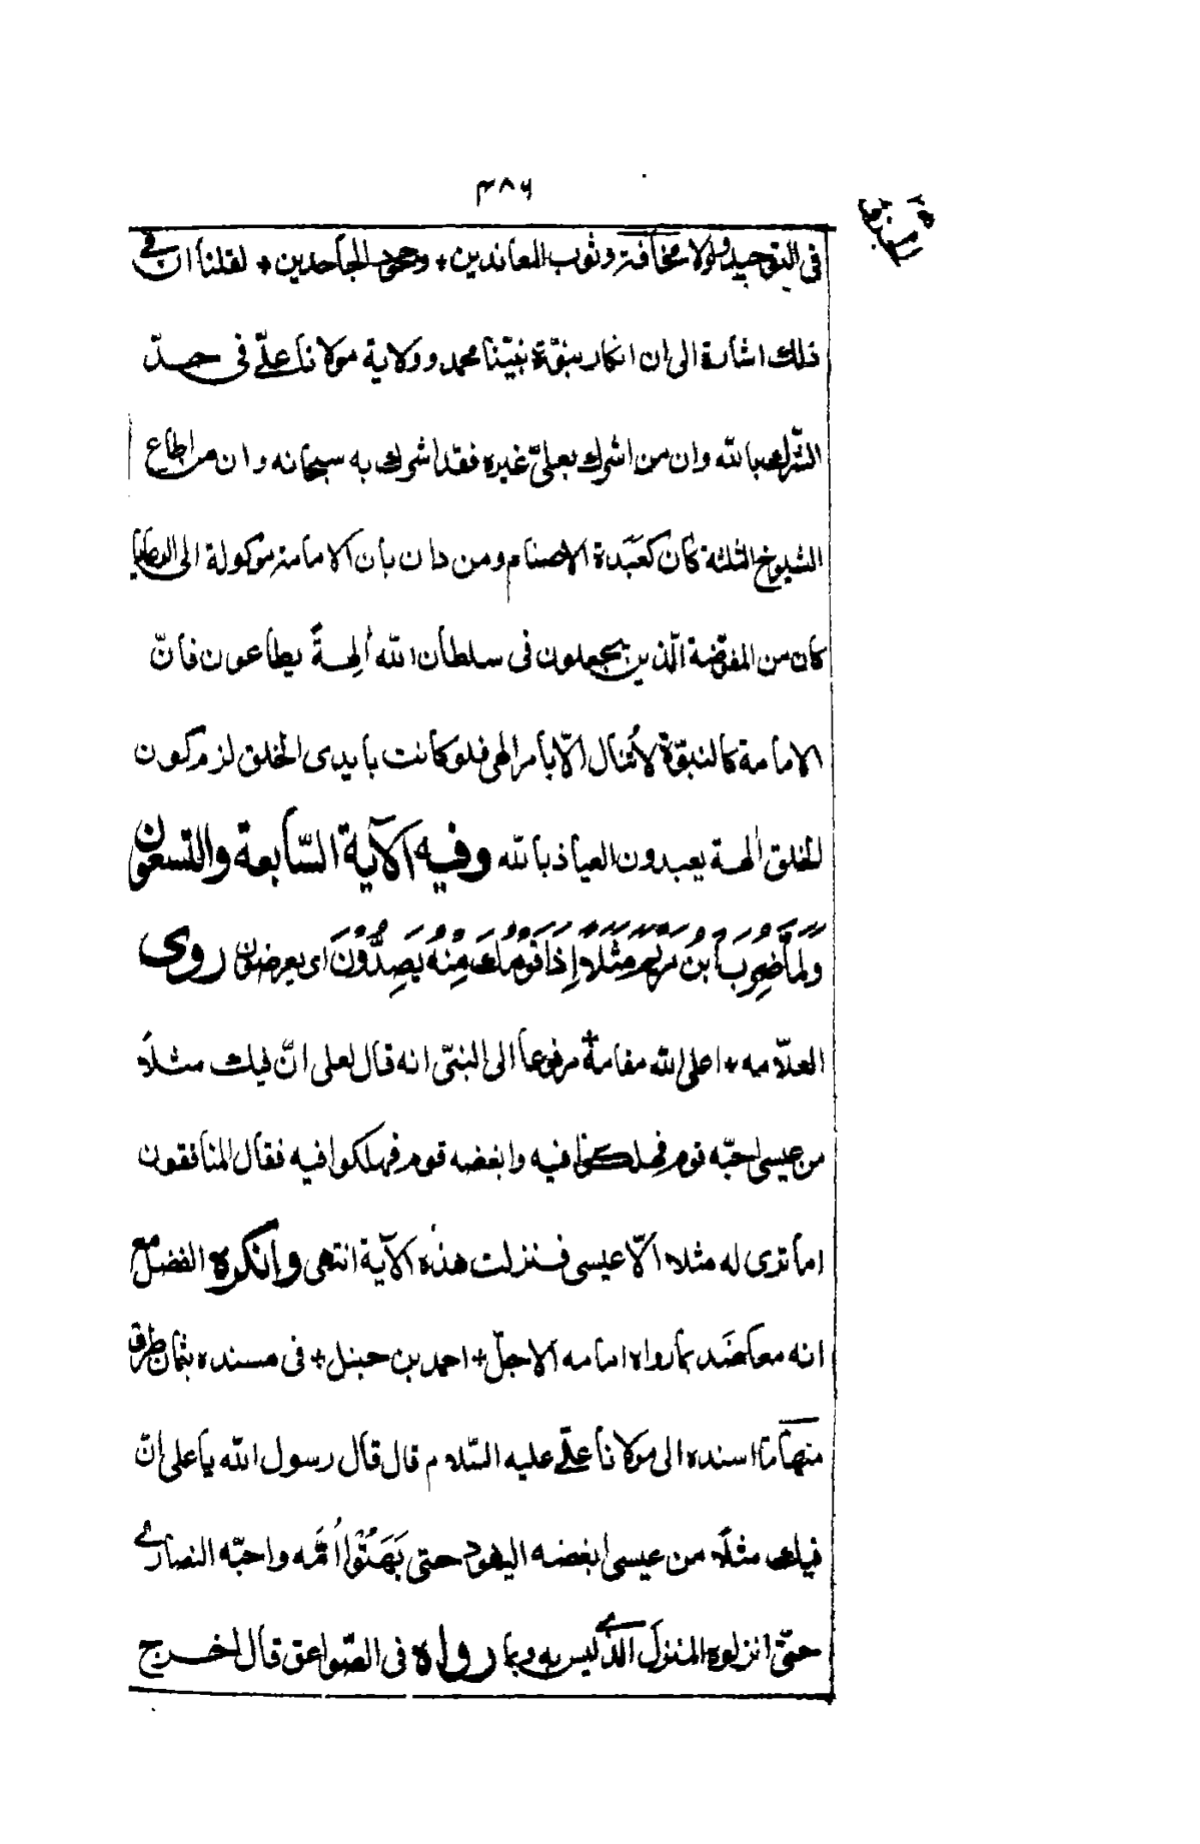 ٣٨٦
في التوحيد ولولا مخافة وثوب المعاندين + وجحود الجاحدين + لقلنا ان في
ذلك اشارة الى ان انكار نبوّة نبيّنا محمد وولاية مولانا علّي في حدّ
الشّرك بالله وان من اشرك بعليّ غيره فقد اشرك به سبحانه وان من اطاع
الشيوخ الثلثة كان كعَبَدة الاصنام ومن دان بان الامامة موكولة الى
كان من المفوّضة الّذين يجعلون في سلطان الله اٰلِهةً يطاعون فانّ
الامامة كالنبوّة لا تُنال الّا بامر الٰهي فلو كانت بايدى الخلق لزم كون
الخلق اٰلهة يعبدون العياذ بالله وفيه الآية السّابعة والتسعون
وَلَمَّا ضُرِبَ ابْنُ مَرْيَمَ مَثَلًا إِذَا قَوْمُكَ مِنْهُ يَصِدُّونَ اى يعرضون روى
العلّامه + اعلى الله مقامه + مرفوعا الى النبىّ انه قال لعلى انّ فيك مثلًا
من عيسى احبّه قوم فهلكوا فيه وابغضه قوم فهلكوا فيه فقال المنافقون
اما ترى له مثلا الّا عيسى فنزلت هذه الآية انتهى وانكره الفضل مع
انه معاضَد بما رواه امامه الاجلّ + احمد بن حنبل + في مسنده بثمان طرق
منها ما اسنده الى مولانا علّي عليه السّلام قال قال رسول الله يا على انّ
فيك مثلًا من عيسى ابغضه اليهود حتى بَهَتُوْا اُمَّه واحبّه النصارى
حتّى انزلوه المنزل الّذي ليس به وبما رواه في الصّواعق قال اخرج